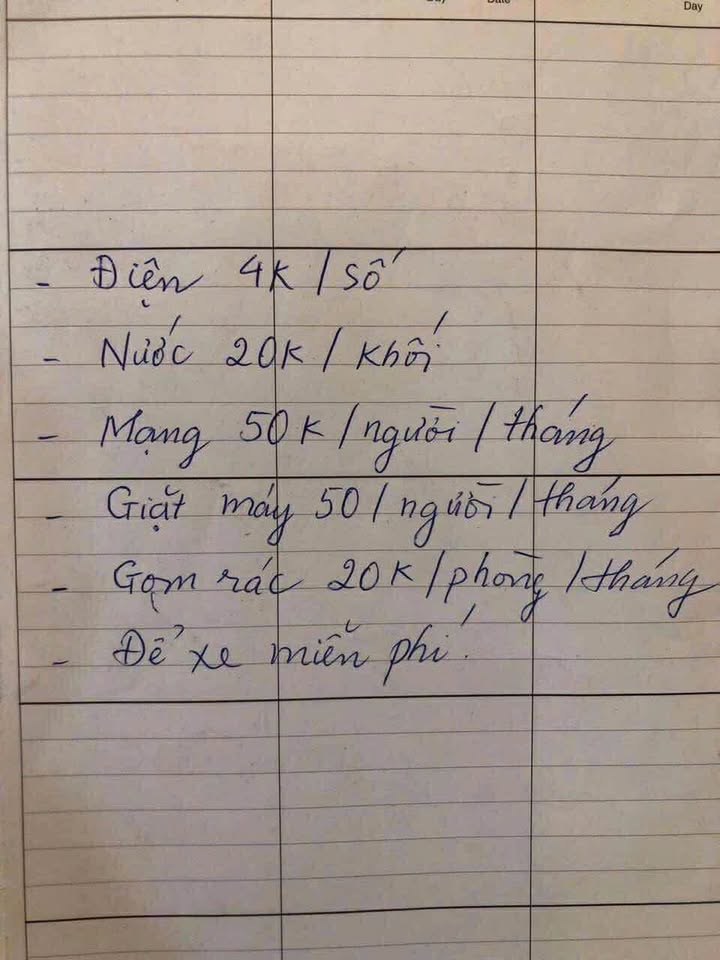 Day Date Day
- Điện 4K / số
- Nước 20K / khối
- Mạng 50K / người / tháng
- Giặt máy 50 / người / tháng
- Gom rác 20K / phòng / tháng
- Để xe miễn phí.